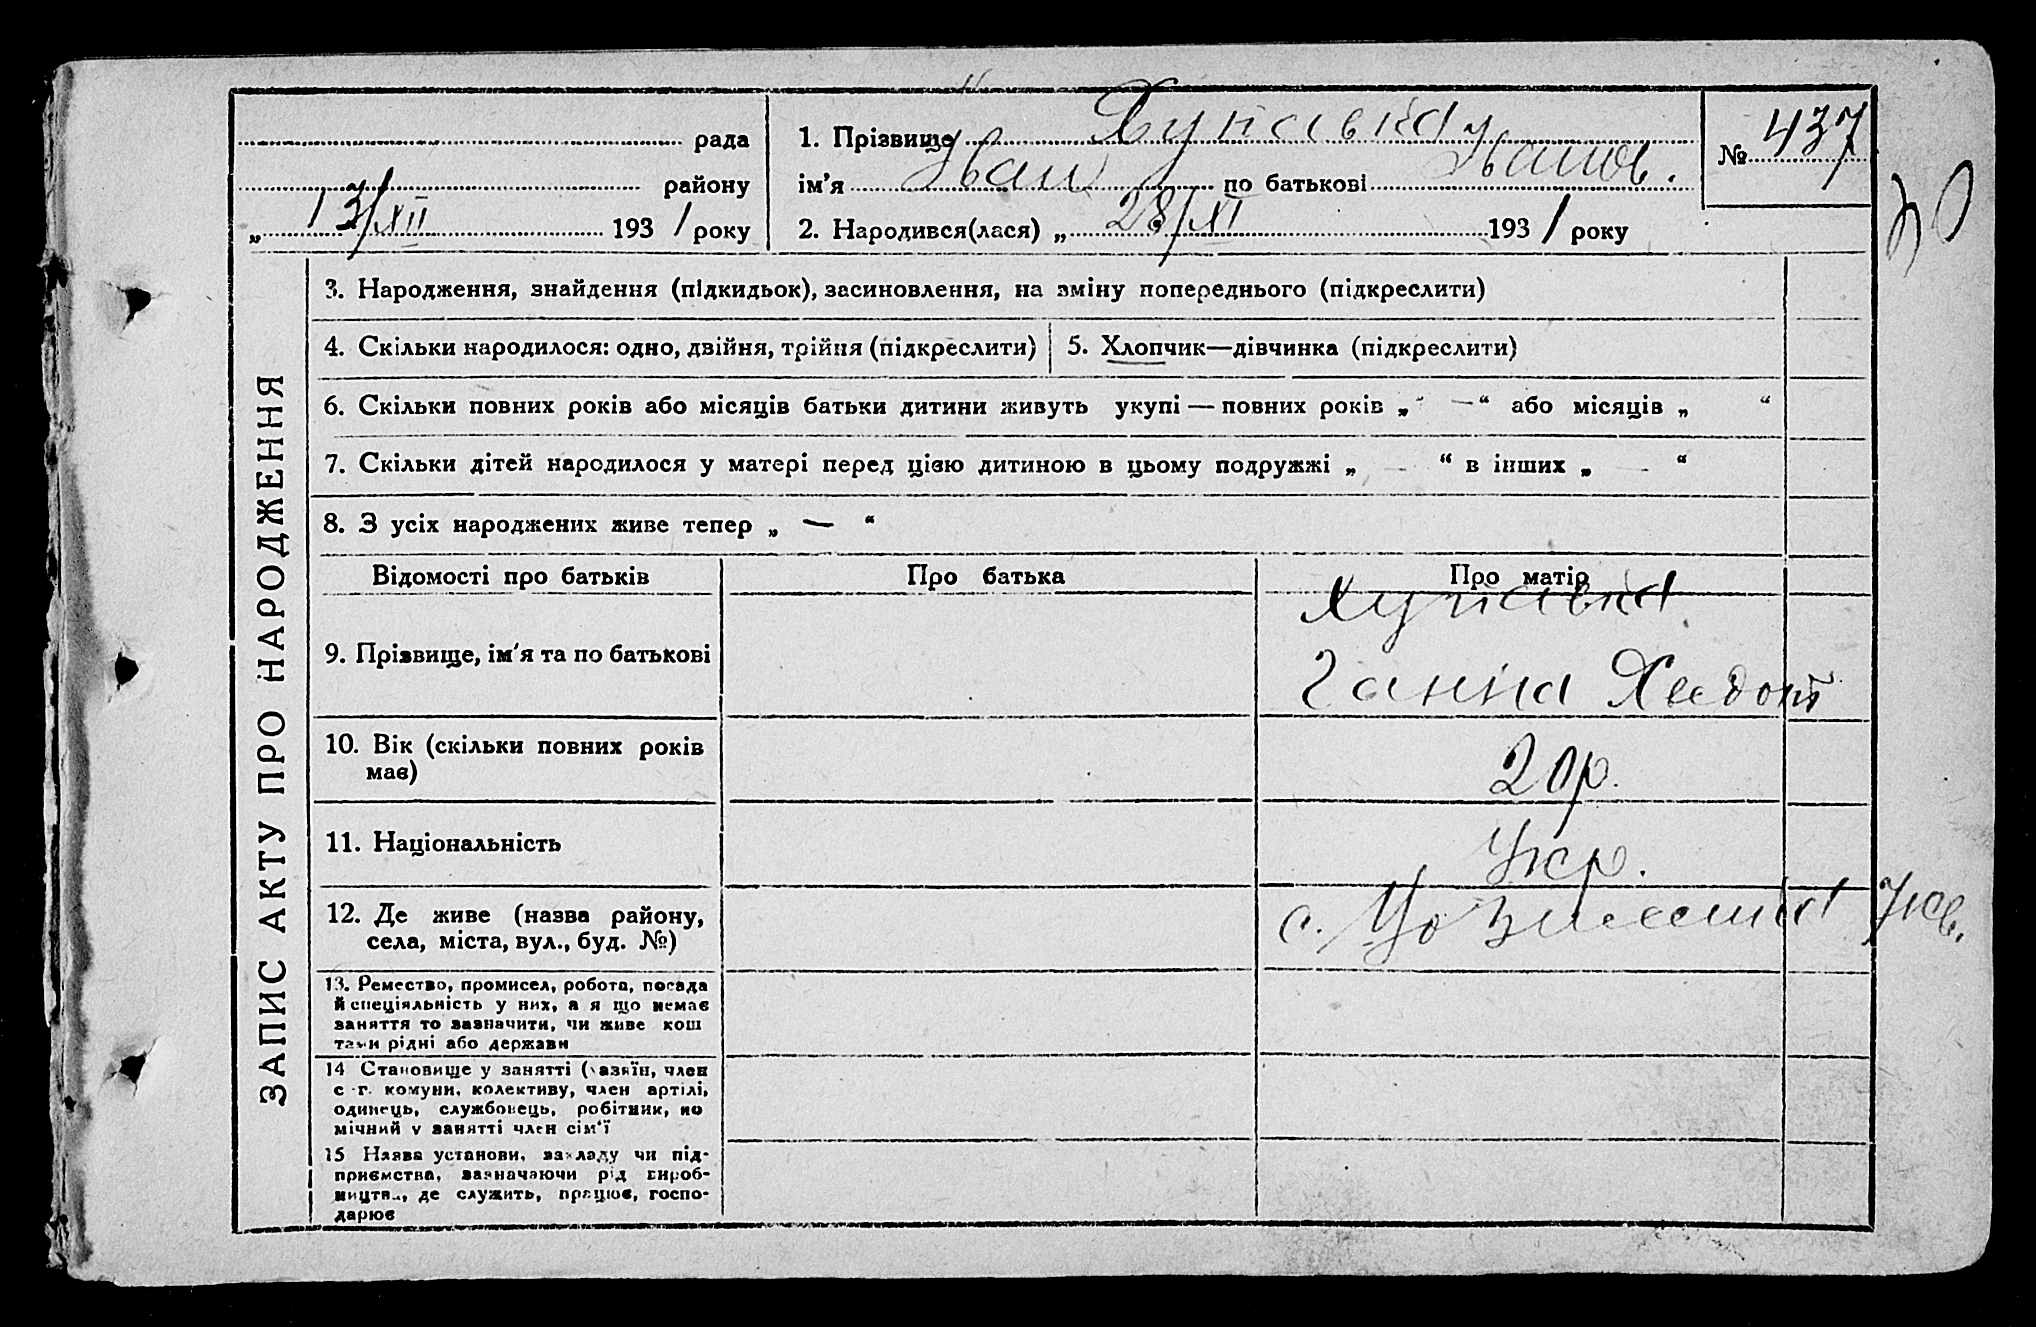 рада
району
„ 13/XII 1931 року
1. Прізвище
ім'я Іван по батькові Іванов.
2. Народився(лася) „ 28/XI 1931 року
№ 437
ЗАПИС АКТУ ПРО НАРОДЖЕННЯ
3. Народження, знайдення (підкидьок), засиновлення, на зміну попереднього (підкреслити)
4. Скільки народилося: одно, двійня, трійня (підкреслити)
5. Хлопчик—дівчинка (підкреслити)
6. Скільки повних років або місяців батьки дитини живуть укупі — повних років „ — “ або місяців „ “
7. Скільки дітей народилося у матері перед цією дитиною в цьому подружжі „ - “ в інших „ - “
8. З усіх народжених живе тепер „ — “
Відомості про батьків
Про батька
Про матір
9. Прізвище, ім'я та по батькові
Ганна
10. Вік (скільки повних років
має)
20 р.
11. Національність
Укр.
12. Де живе (назва району,
села, міста, вул., буд. №)
с.
13. Ремество, промисел, робота, посада
й спеціяльність у них, а я що немає
заняття то зазначити, чи живе кош
тами рідні або держави
14 Становище у занятті (хазяїн, член
с-г. комуни, колективу, член артілі,
одинець, службовець, робітник, по
мічний у занятті член сім'ї
15 Назва установи, закладу чи під-
приємства, зазначаючи рід вироб-
ництва, де служить, працює, госпо-
дарює